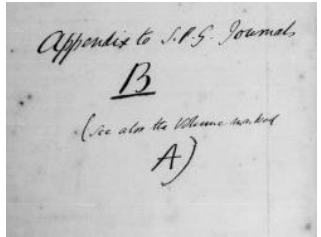 Appendix to S.P.G. Journals
B
(See also the Volume marked
A)